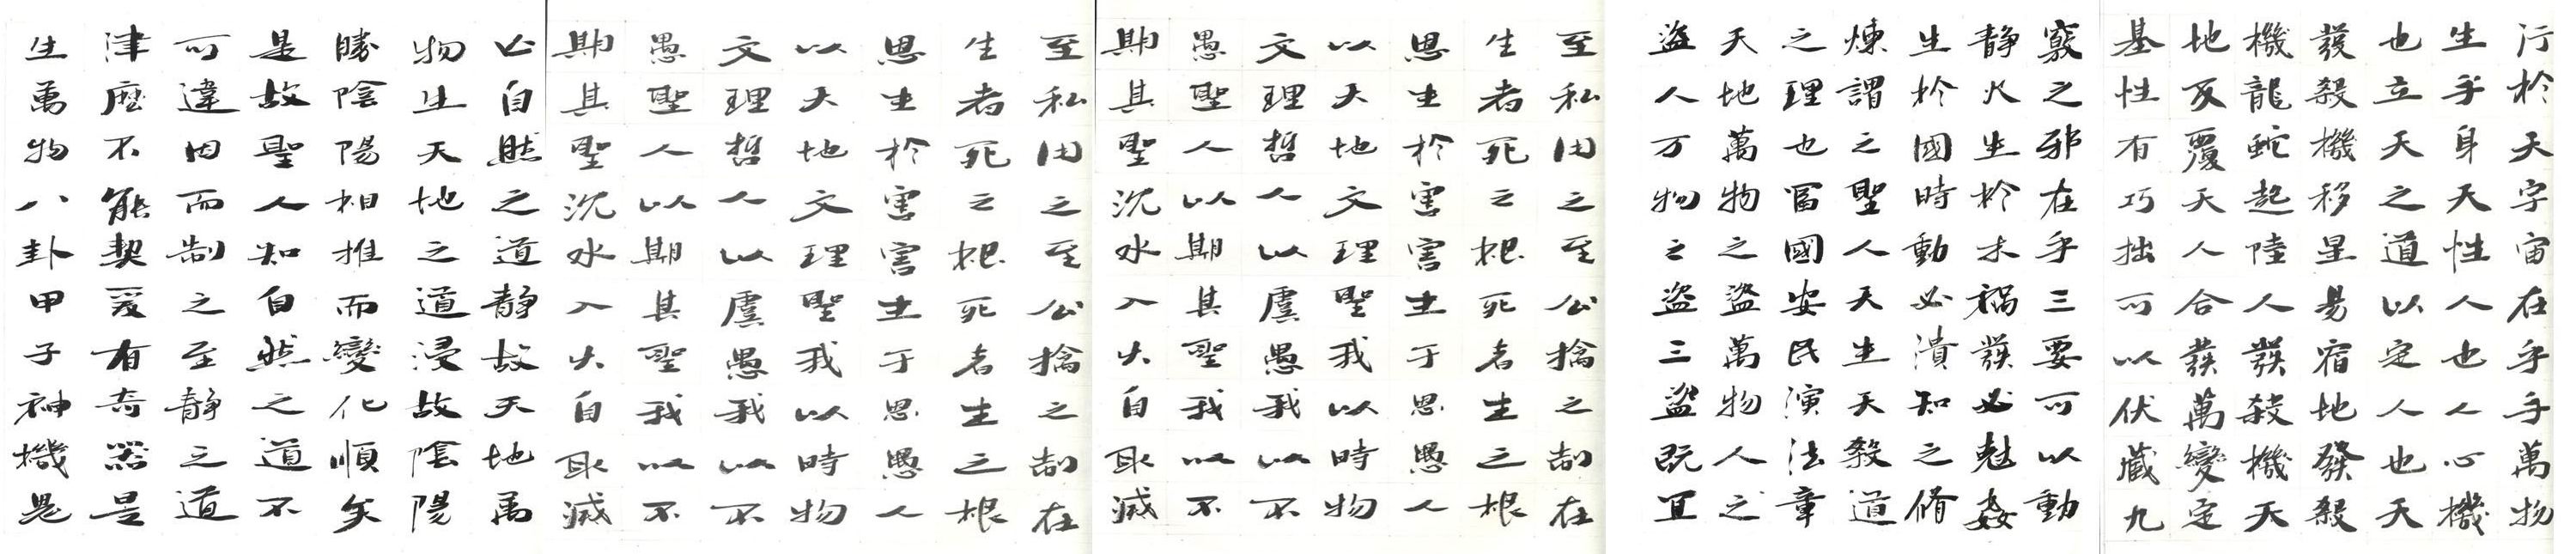 行於天宇宙在乎手萬物
生乎身天性人也人心機
也立天之道以定人也天
發殺機移星易宿地發殺
機龍蛇起陸人發殺機天
地反覆天人合發萬變定
基性有巧拙可以伏藏九
竅之邪在乎三要可以動
静火生於木禍發必尅姦
生於國時動必潰知之脩
煉謂之聖人天生天殺道
之理也富國安民演法章
天地萬物之盜萬物人之
盜人万物之盜三盜既宜
至私用之至公擒之制在
生者死之根死者生之根
恩生於害害生于恩愚人
以天地文理聖我以時物
文理哲人以虞愚我以不
愚聖人以期其聖我以不
期其聖沉水入火自取滅
至私用之至公擒之制在
生者死之根死者生之根
恩生於害害生于恩愚人
以天地文理聖我以時物
文理哲人以虞愚我以不
愚聖人以期其聖我以不
期其聖沉水入火自取滅
必自然之道静故天地萬
物生天地之道浸故陰陽
勝陰陽相推而變化順矣
是故聖人知自然之道不
可違因而制之至静之道
津曆不能契爰有奇器是
生萬物八卦甲子神機鬼